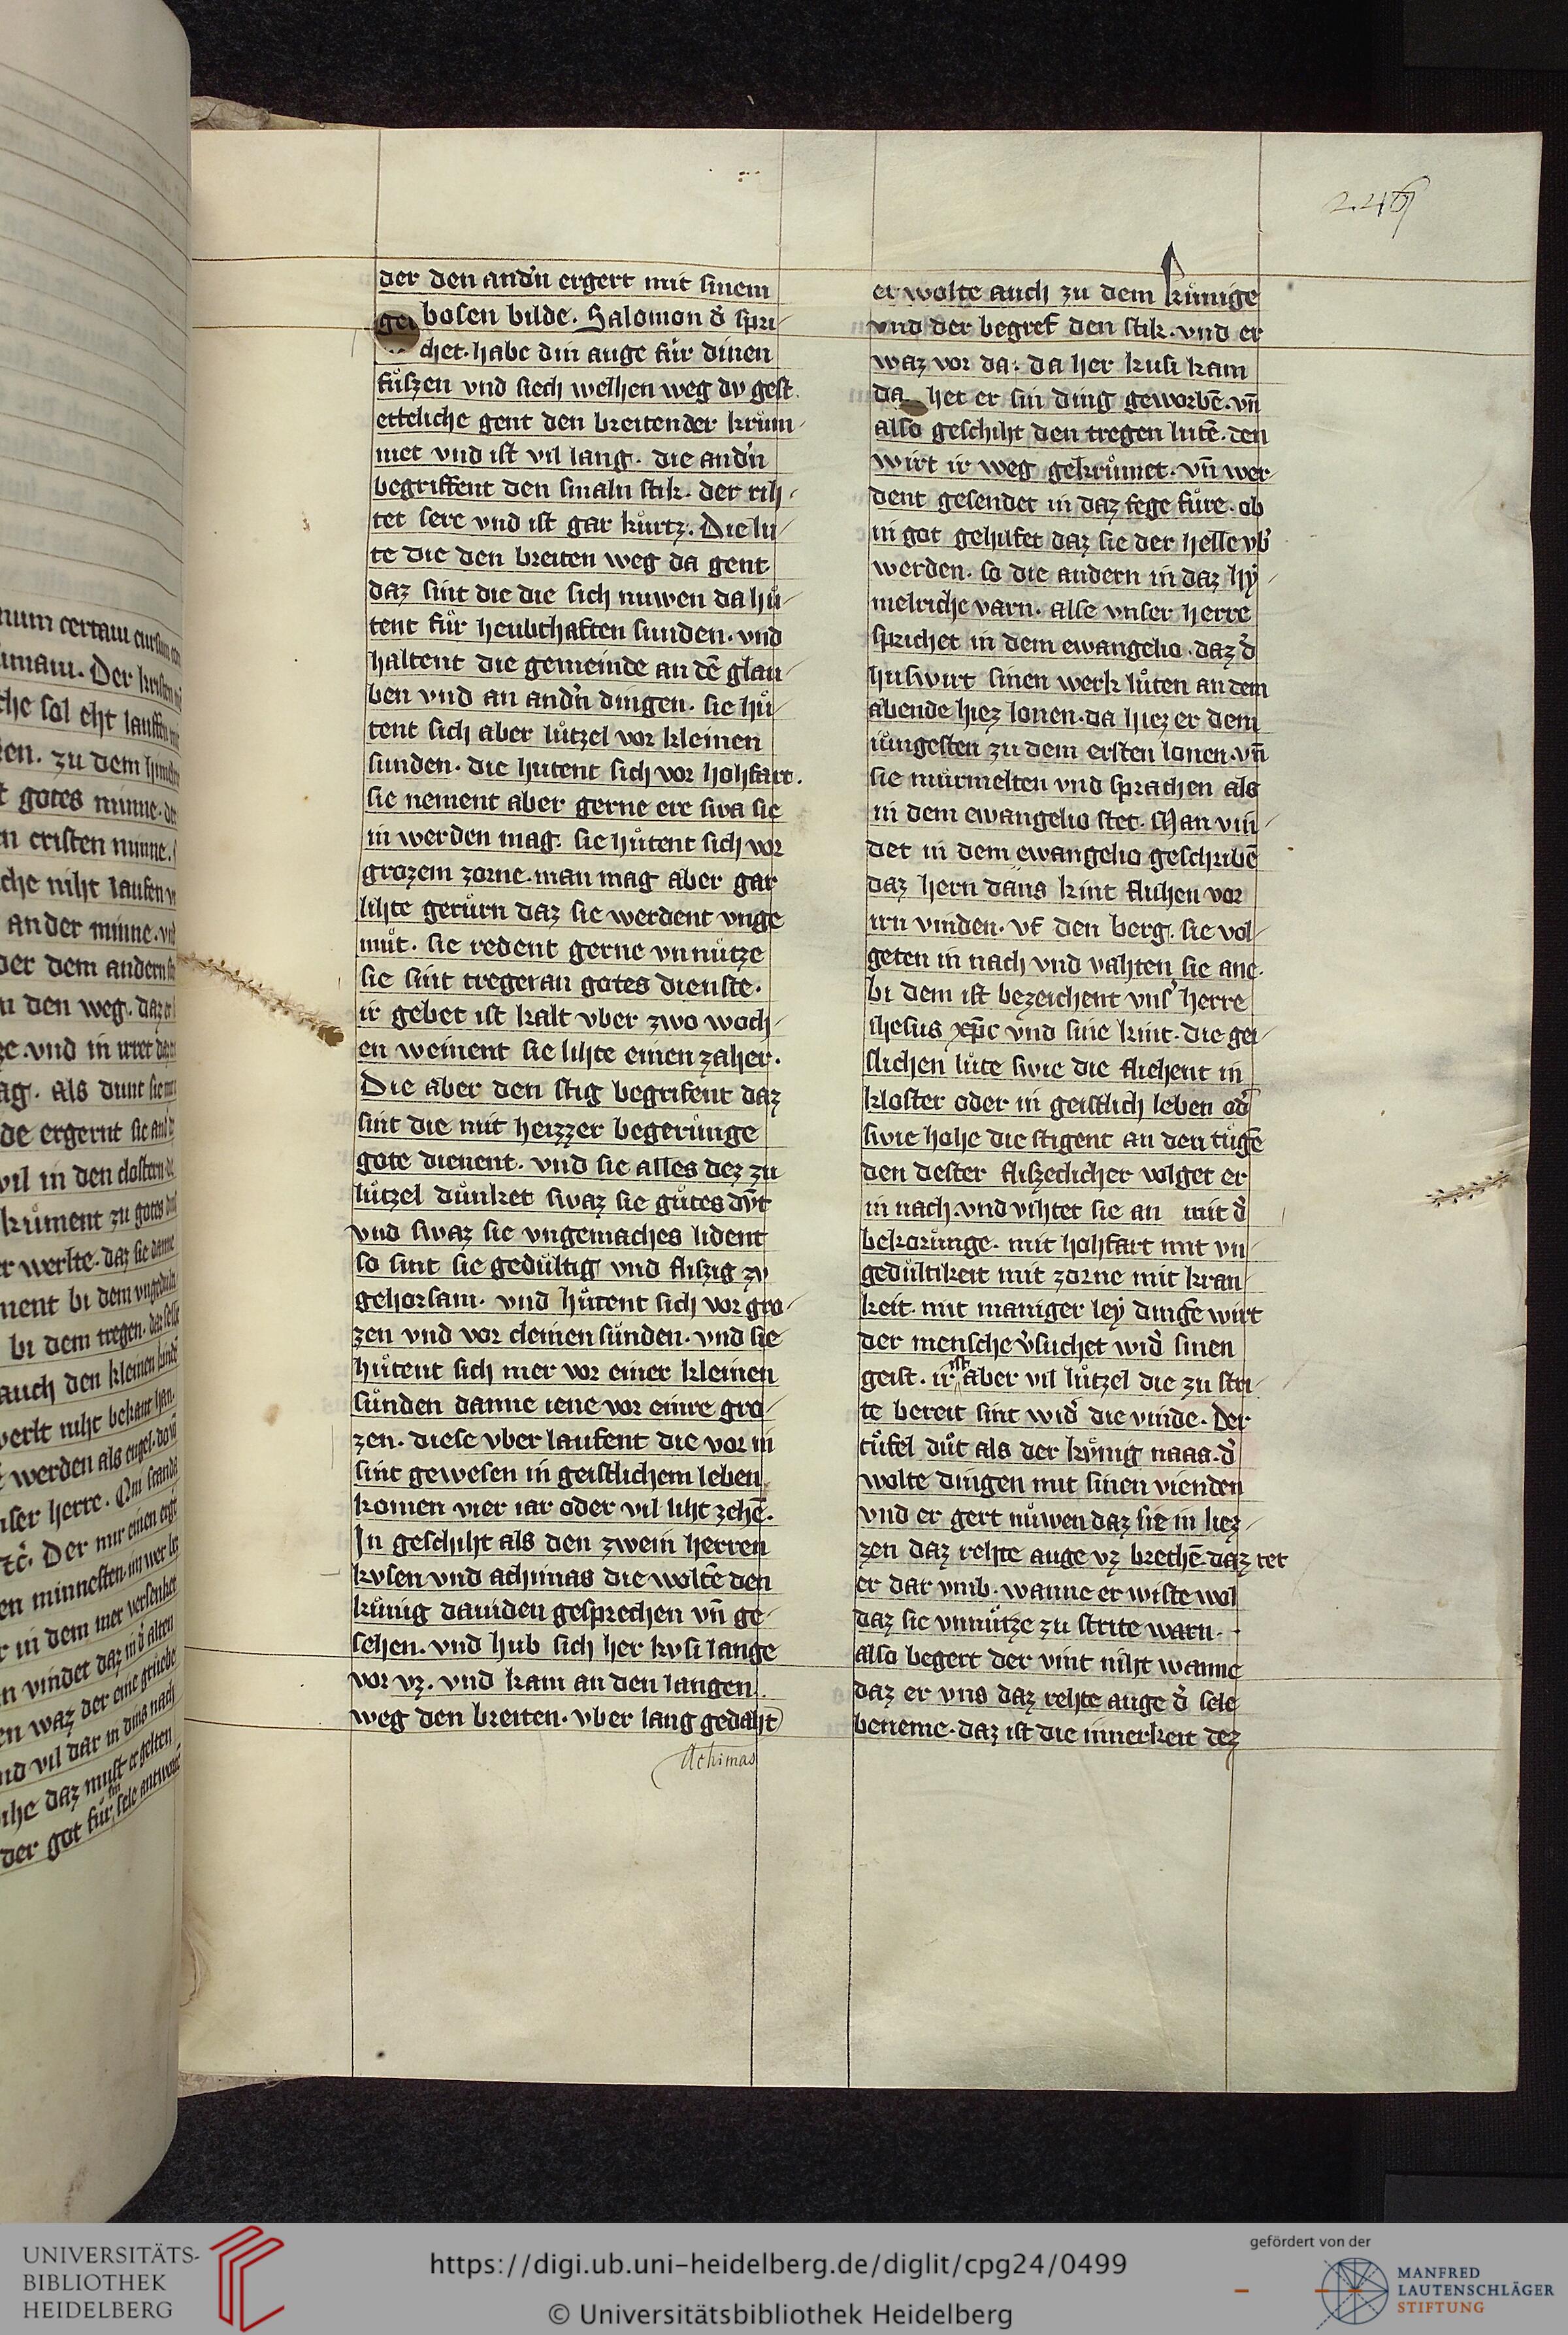 246
der den and'n ergert mit sinem
bosen bilde. Salomon d' spri-
chet. habe din auge für dinen
fuͤszen vnd siech welhen weg dv gest.
etteliche gent den breiten der krüm-
met vnd ist vil lang. die and'n
begriffent den smaln stik. der rih-
tet sere vnd ist gar kürtz. Die lü-
te die den breiten weg da gent
daz sint die die sich nuwen da huͤ-
tent für heubthaften sunden. vnd
haltent die gemeinde an dē glau-
ben vnd an and'n dingen. sie huͤ-
tent sich aber lützel vor kleinen
sunden. die hutent sich vor hohfart.
sie nement aber gerne ere swa sie
in werden mag. sie huͤtent sich vor
grozem zorne. man mag aber gar
lihte geruͤrn daz sie werdent vnge
muͤt. sie redent gerne vnnütze
sie sint treger an gotes dienste.
ir gebet ist kalt vber zwo woch-
en weinent sie lihte einen zaher.
Die aber den stig begrifent daz
sint die mit heizzer begerünge
gote dienent. vnd sie alles dez zu
lützel dünket swaz sie guͤtes dv̄t
vnd swaz sie vngemaches lident
so sint sie gedültig vnd fliszig zv
gehorsam. vnd huͤtent sich vor gro-
zen vnd vor cleinen sünden. vnd sie
huͤtent sich mer vor einer kleinen
sünden danne iene vor einre gro-
zen. diese vber laufent die vor in
sint gewesen in geistlichem leben
komen vier iar oder vil liht zehē.
In geschiht als den zwein herren
kvsen vnd achimas die woltē den
künig dauiden gesprechen vn̄ ge-
sehen. vnd hub sich her kvsi lange
vor vz. vnd kam an den langen
weg den breiten. vber lang gedaht
Achimas
er wolte auch zu dem künige
vnd der begref den stik. vnd er
waz vor da. da her kusi kam
da het er sin ding geworbē. vn̄
also geschiht den tregen lutē. den
wirt ir weg gekrümet. vn̄ wer-
dent gesendet in daz fege füre. ob
in got gehilfet daz sie der helle vb'
werden. so die andern in daz hẏ-
melriche varn. alse vnser herre
sprichet in dem ewangelio. daz d'
huswirt sinen werk lüten an dem
abende hiez lonen. da hiez er dem
iüngesten zu dem ersten lonen. vn̄
sie mürmelten vnd sprachen als
in dem ewangelio stet. Man vin-
det in dem ewangelio geschribē
daz hern dauis kint fluhen vor
irn vinden. vf den berg. sie vol-
geten in nach vnd vahten sie ane.
bi dem ist bezeichent vns' herre
ihesus xp̄c vnd sine kint. die gei-
slichen lüte swie die flichent in
kloster oder in geistlich leben od'
swie hohe die stigent an den tügē
den dester fliszeclicher volget er
in nach. vnd vihtet sie an mit d'
bekorünge. mit hohfart mit vn-
gedültikeit mit zorne mit kran-
keit. mit maniger leẏ dingē wirt
der mensche v'suchet wid' sinen
geist. ir ist aber vil lützel die zu stri-
te bereit sint wid' die vinde. Der
tüfel duͤt als der kv̊nig naas. d'
wolte dingen mit sinen vienden
vnd er gert nüwen daz sie in liez-
zen daz rehte auge vz brechē. daz tet
er dar vmb. wanne er wiste wol
daz sie vnnütze zu strite warn.
also begert der vint niht wanne
daz er vns daz rehte auge d' sele
beneme. daz ist die innerkeit dez
UNIVERSITÄTS-
BIBLIOTHEK
HEIDELBERG
https://digi.ub.uni-heidelberg.de/diglit/cpg24/0499
© Universitätsbibliothek Heidelberg
gefördert von der
MANFRED
LAUTENSCHLÄGER
STIFTUNG